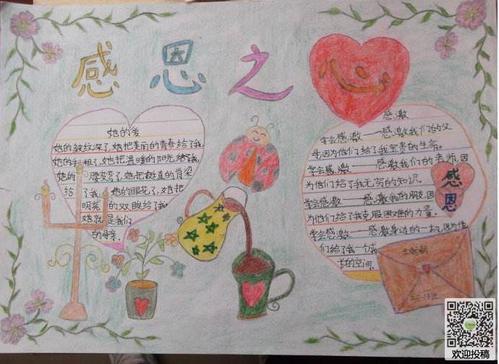 感恩之心
她的爱
她的皱纹深了,她把美丽的青春给了我
她的
她把温暖的
给了我
她的
弯了,她把挺直的脊梁
给了我,她的眼花了,她把
明亮的双眼给了我
她就是我们
的母亲。
感激
学会感激——感激我们的父
母,因为他们给了我宝贵的生命。
学会感激——感激我们的老师,因
为他们给了我无穷的知识。
学会感激——感激我的朋友,因
为他们给了我克服困难的力量。
学会感激——感激身边的一切,因为
们给了我一个
的空间。
感恩
欢迎投稿